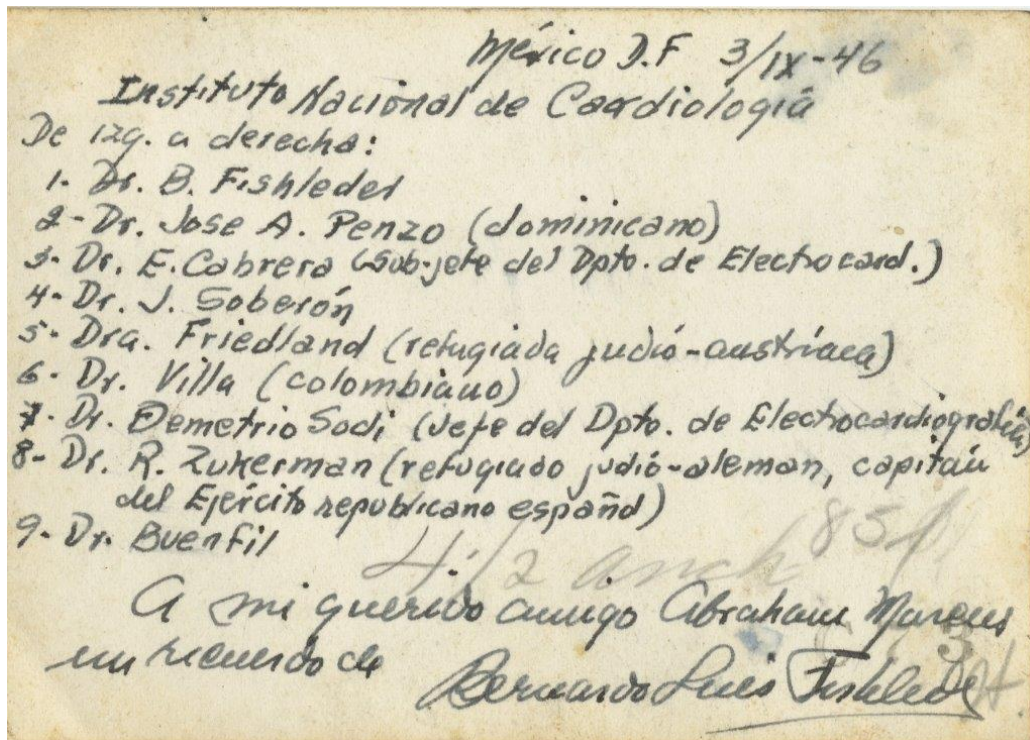 México D.F 3/IX-46
Instituto Nacional de Cardiología
De izq. a derecha:
1- Dr. B. Fishleder
2- Dr. Jose A. Penzo (dominicano)
3- Dr. E. Cabrera (Sub-jefe del Dpto. de Electrocard.)
4- Dr. J. Soberón
5- Dra. Friedland (refugiada judío-austríaca)
6- Dr. Villa (colombiano)
7- Dr. Demetrio Sodi (Jefe del Dpto. de Electrocardiografía)
8- Dr. R. Zukerman (refugiado judío-aleman, capitán
del Ejército republicano español)
9- Dr. Buenfil
4 1/2 anch 85
A mi querido amigo Abraham Marcus
un recuerdo de
Bernardo Luis Fishleder
3